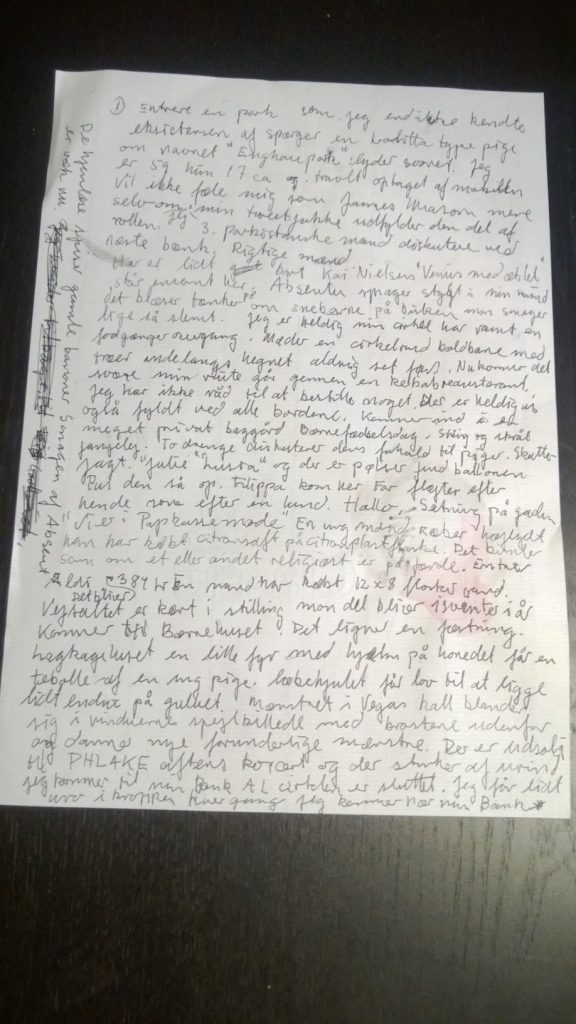 ① Entrere en park som jeg end ikke kendte
eksistensen af spørger en type pige
om navnet "Enghave park" lyder svaret. Jeg
er 59 hun 17 ca og travlt optaget af mobilen
Vil ikke føle mig som James Mason mere
selv om min tweetjakke udfylder den del af
rollen. Jeg 3. pakistanske mænd diskutere ved
næste bænk. Rigtige mænd
Har er lidt bart Kai Nielsens "Venus med æblet"
står ensomt her. Absenten smager stygt i min mund
det blæser tænker på om snebærne på busken man smager
lige så slemt. Jeg er heldig min cirkel har ramt en
fodgænger overgang. Møder en cirkelrund boldbane med
træer indelangs hegnet aldrig set før. Nu kommer det
svære min route går gennem en kebabreaustarant.
Jeg har ikke råd til at bestille noget. Der er heldigvis
også fyldt ved alle bordene. Kommer ind i en
meget privat baggård Børnefødselsdag. Skrig og skrål
gangleg. To drenge diskuterer deres forhold til piger. Skatte-
jagt. "Julie" "Lusia" og der er pølser find ballonen
Pus den så op. Filippa kom her Far fløjter efter
hende som efter en hund. Hallo, Sætning på gaden
"Vi er i Papkassemode" En ung mand ræber højlydt
han har købt citronsaft på citronplastflaske. Det
som om et eller andet religiøst er på færde. Entrer
Aldi En mand har købt 12 x 8 flasker vand
Vejsaltet er kørt i stilling mon det bliver isvinter i år
Kommer til Børnehuset. Det ligner en fæstning.
Lagkagehuset en lille fyr med hjelm på hovedet får en
tebolle af en ung pige. Løbehjulet får lov til at ligge
lidt endnu på gulvet. Mønstret i Vegas hall blander
sig i vinduerne spejlbillede med brostene udenfor
og danner nye forunderlige mønstre. Der er udsolgt
til PHLAKE aftens koncert og der stinker af urin
jeg kommer til min Bank AL cirklen er sluttet. Jeg får lidt
uro i kroppen hver gang jeg kommer nær min Bank
De hjemløse spiser gamle bananer Smagen af Absent
er væk nu